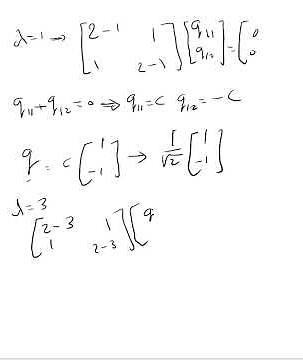 λ=1 → [2-1 1; 1 2-1] [q₁₁; q₁₂] = [0; 0]
q₁₁+q₁₂=0 ⇒ q₁₁=c q₁₂=-c
q = c [1; -1] → 1/√2 [1; -1]
λ=3
[2-3 1; 1 2-3] [q